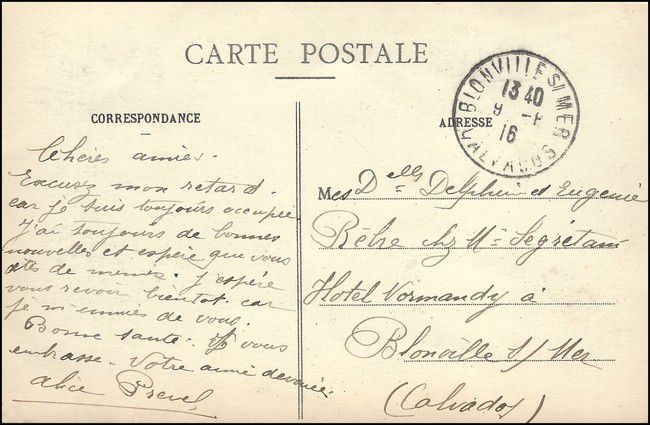 CARTE POSTALE
CORRESPONDANCE
ADRESSE
BLONVILLE S/ MER
13 40
9 -8
16
CALVADOS
Chères amies.
Excusez mon retard.
car je suis toujours occupée
J'ai toujours de bonnes
nouvelles et espère que vous
êtes de memes. J'espère
vous revoir bientot. car
je m'ennues de vous.
Bonne sante. Je vous
embrasse. Votre amie devouée
Alice Prevel
Mes Delles Delphin et Eugenie
chez Mr Segrétain
Hotel Normandy à
Blonville s/ Mer
(Calvados)